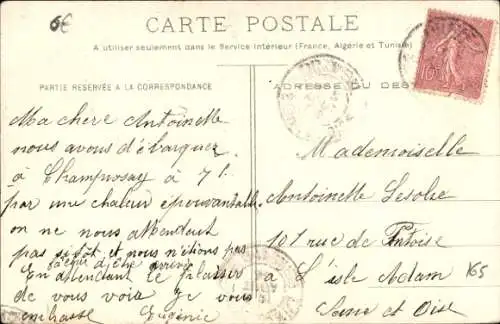 6€
CARTE POSTALE
A utiliser seulement dans le Service Intérieur (France, Algérie et Tunisie)
PARTIE RÉSERVÉE A LA CORRESPONDANCE
ADRESSE DU DEST
Ma chère Antoinette
nous avons débarquer
à Champrosay à 7h
par une chaleur épouvantable
on ne nous attendait
pas si tôt et nous n'étions pas
d'être
En attendant le plaisir
de vous voir Je vous
embrasse Eugénie
Mademoiselle
Antoinette
101 rue de Pontoise
à L'isle Adam 165
Seine et Oise